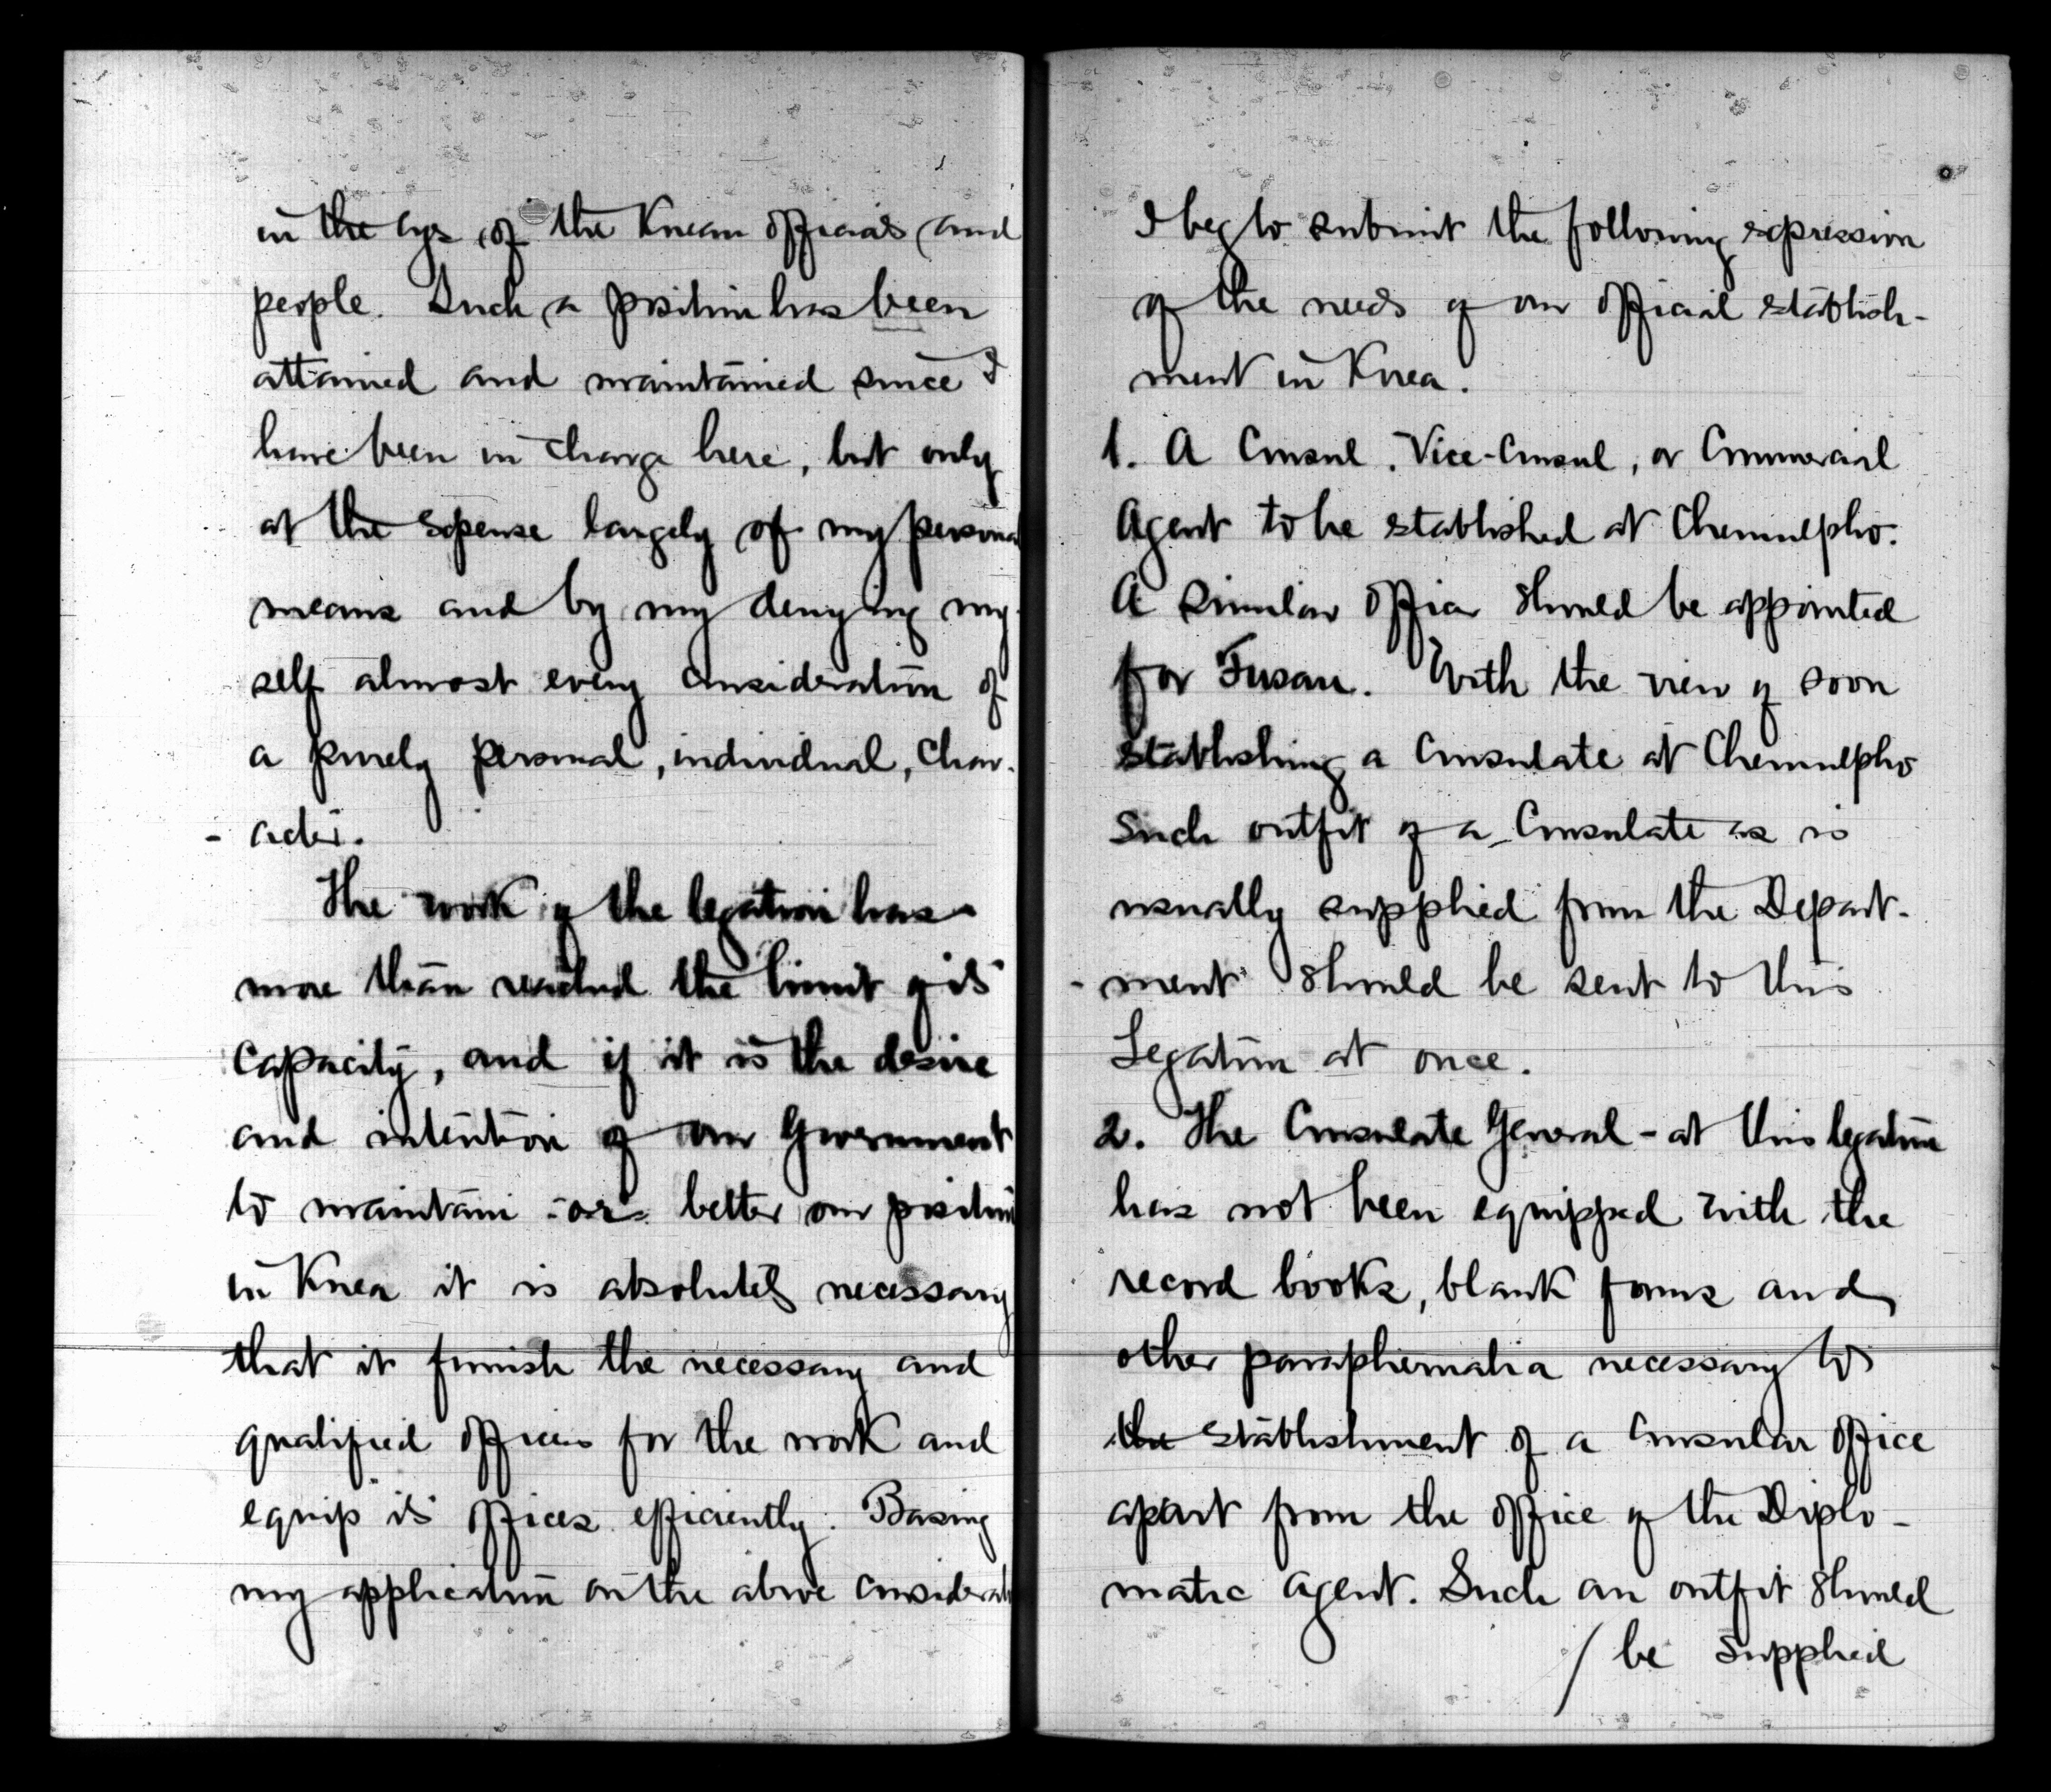 in the eyes of the Korean officials and
people. Such a position has been
attained and maintained since I
have been in charge here, but only
at the expense largely of my personal
means and by my denying my-
self almost every consideration of
a purely personal, individual, char-
- acter.
The work of the legation has
more than reached the limit of its
capacity, and if it is the desire
and intention of our Government
to maintain - or - better our position
in Korea it is absolutely necessary
that it furnish the necessary and
qualified officers for the work and
equip its offices efficiently. Basing
my application on the above considerati
I beg to submit the following expression
of the needs of our official establish-
ment in Korea.
1. A Consul, Vice-Consul, or Commercial
Agent to be established at Chemulpho.
A similar officer should be appointed
for Fusan. With the view of soon
establishing a Consulate at Chemulpho
such outfit of a Consulate as is
usually supplied from the Depart-
- ment should be sent to this
Legation at once.
2. The Consulate General - at this legation
has not been equipped with the
record books, blank forms and
other paraphernalia necessary to
the establishment of a Consular office
apart from the office of the Diplo-
matic agent. Such an outfit should
/ be supplied